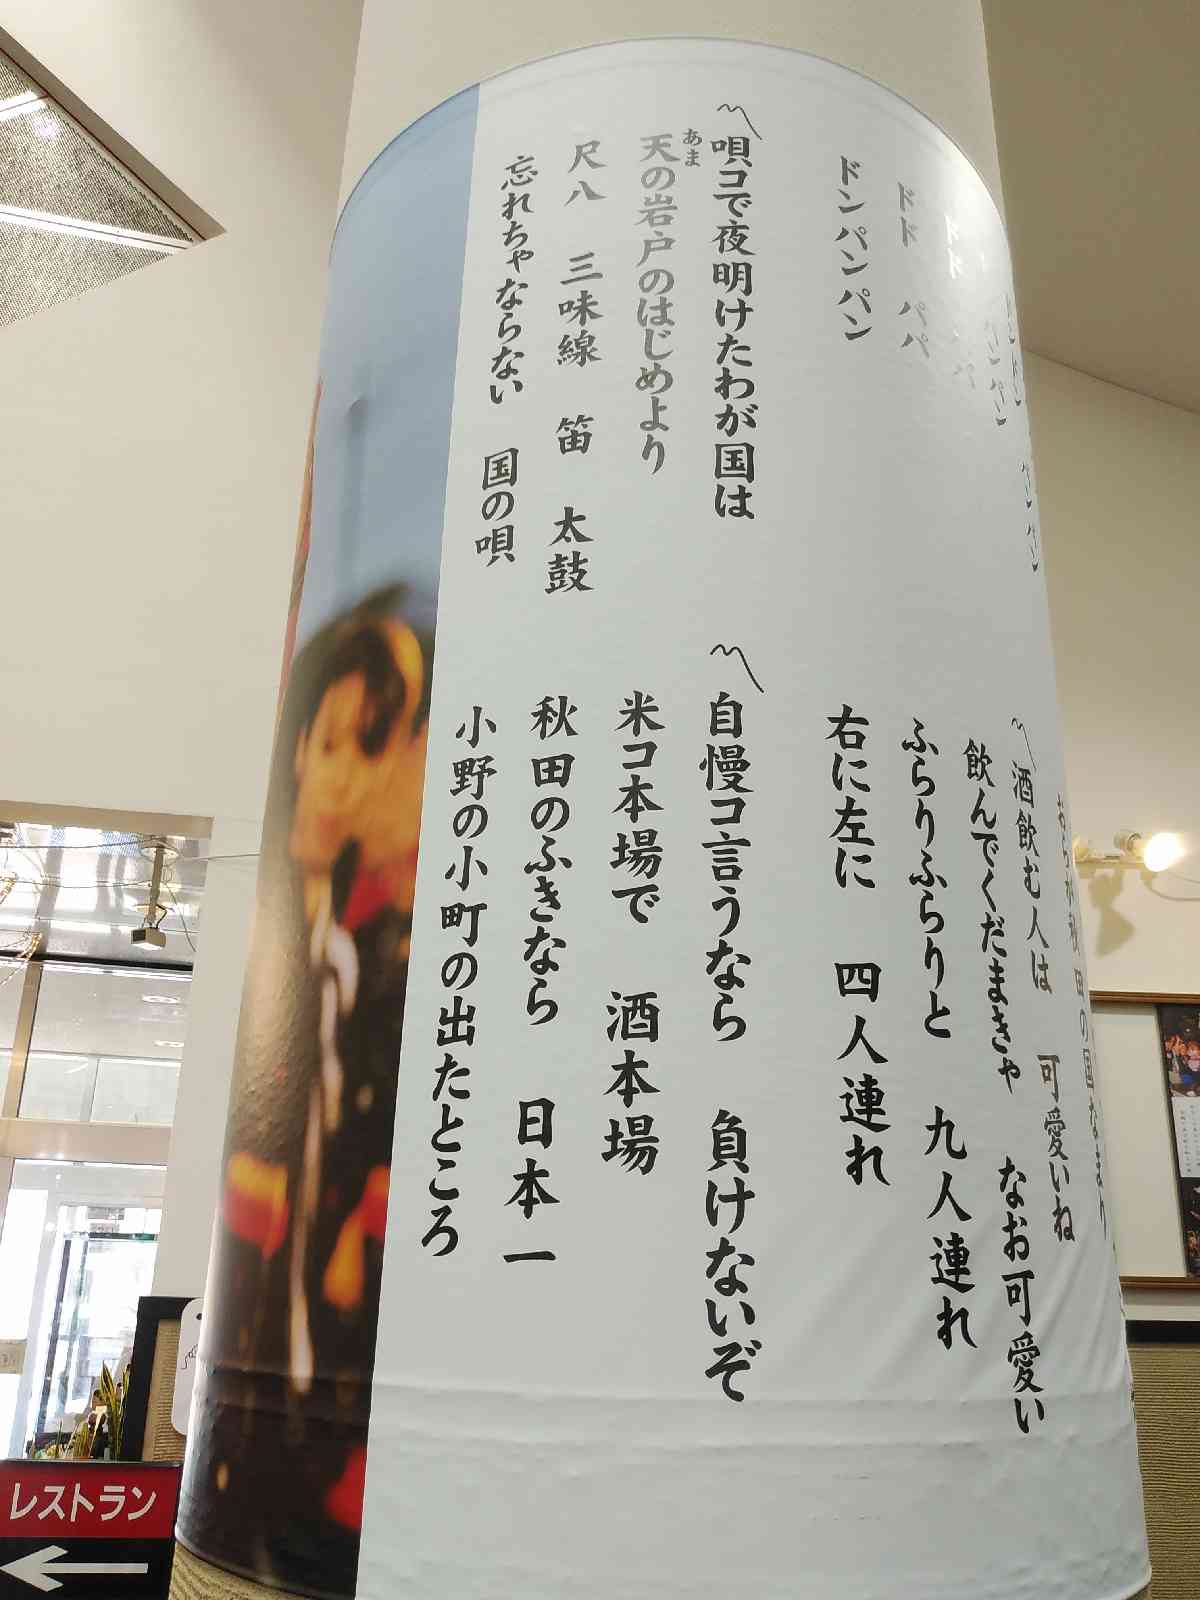 ドド パパ
ドンパンパン
〽唄コで夜明けたわが国は
天の岩戸のはじめより
あま
尺八 三味線 笛 太鼓
忘れちゃならない 国の唄
〽酒飲む人は 可愛いね
飲んでくだまきゃ なお可愛い
ふらりふらりと 九人連れ
右に左に 四人連れ
〽自慢コ言うなら 負けないぞ
米コ本場で 酒本場
秋田のふきなら 日本一
小野の小町の出たところ
レストラン